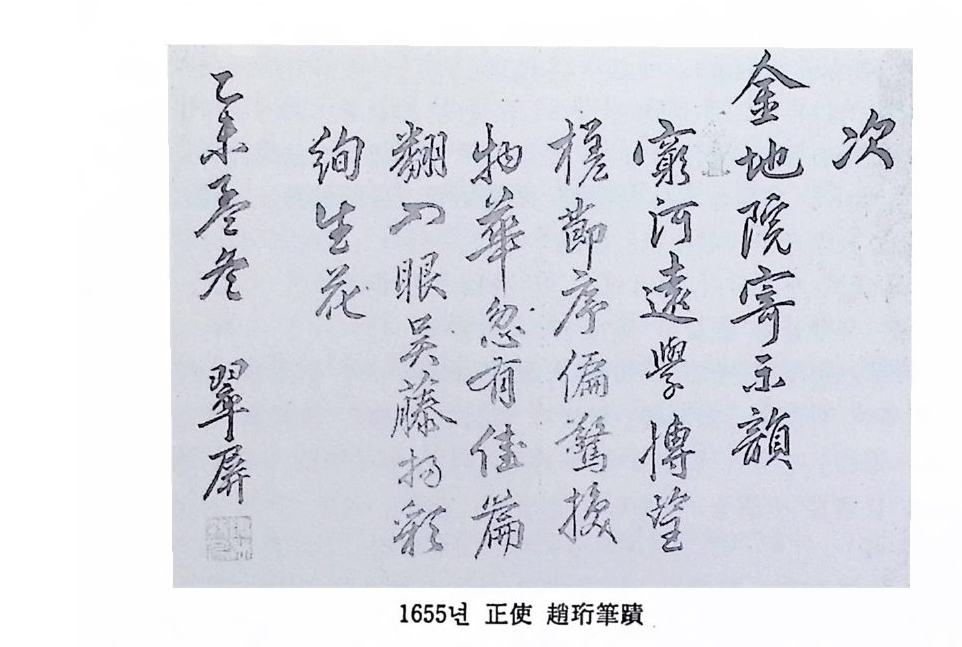 次
金地院寄示韻
窮河遠學博望
槎節序偏驚換
物華忽有佳篇
翻入眼吴藤揚彩
絢生花
乙未孟冬 翠屏
1655년 正使 趙珩筆蹟